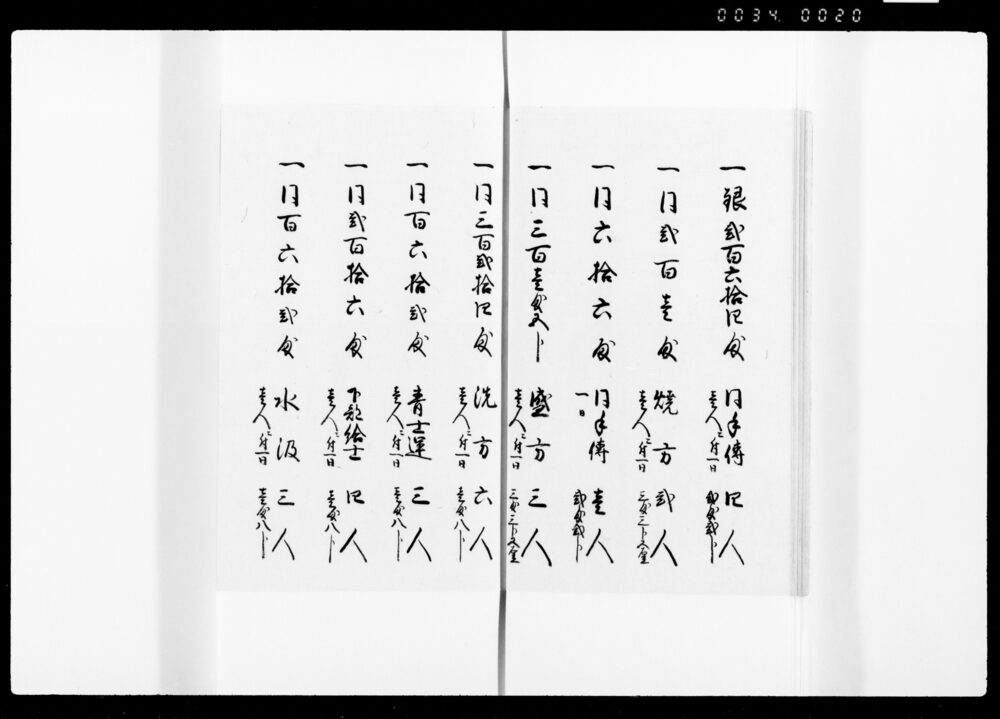 0034. 0020
一銀弐百六拾四匁 同手傳 四人
壱人ニ付一日 弐匁弐分
一同弐百壱匁 焼方 弐人
壱人ニ付一日 三匁三分五厘
一同六拾六匁 同手傳 壱人
一日 弐匁弐分
一同三百壱匁五分 盛方 三人
壱人ニ付一日 三匁三分五厘
一同三百弐拾四匁 洗方 六人
壱人ニ付一日 壱匁八分
一同百六拾弐匁 青士運 三人
壱人ニ付一日 壱匁八分
一同弐百拾六匁 下部給士 四人
壱人ニ付一日 壱匁八分
一同百六拾弐匁 水汲 三人
壱人ニ付一日 壱匁八分